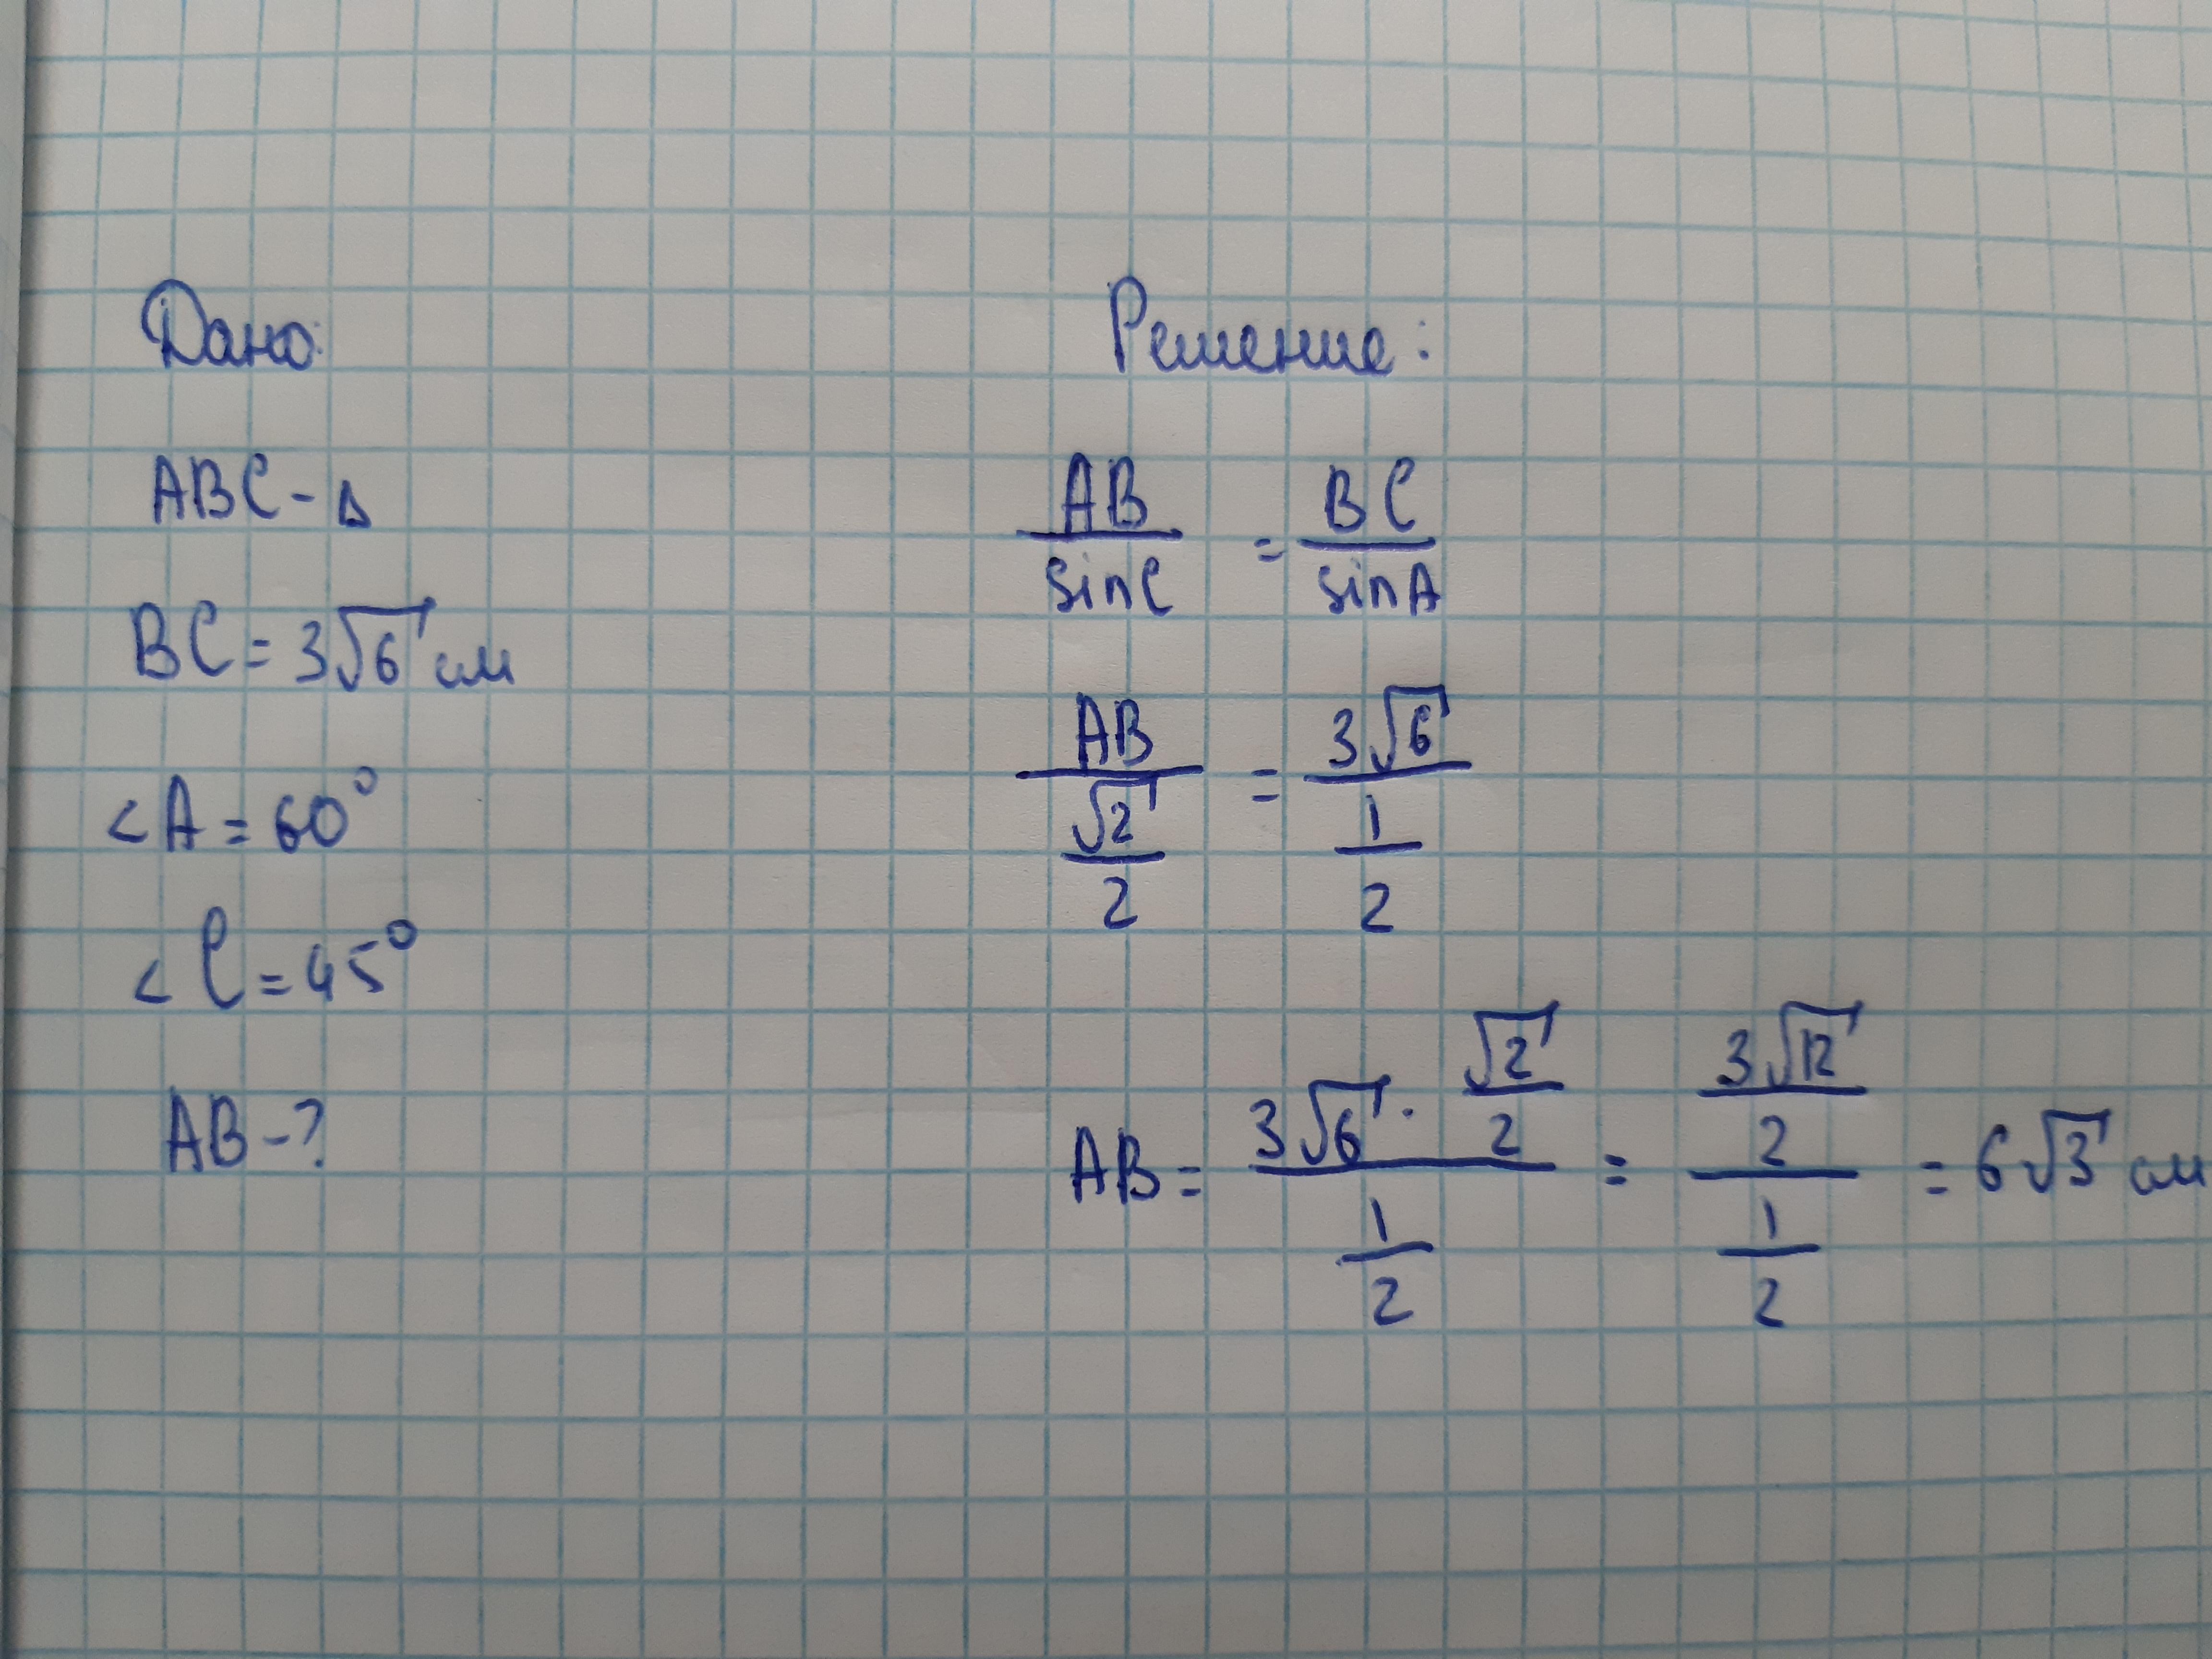 Дано:
ABC - Δ
BC = 3√6 см
<A = 60°
<C = 45°
AB - ?
Решение:
AB/sinC = BC/sinA
AB/(√2/2) = 3√6/(1/2)
AB = (3√6 · √2/2)/(1/2) = (3√12/2)/(1/2) = 6√3 см